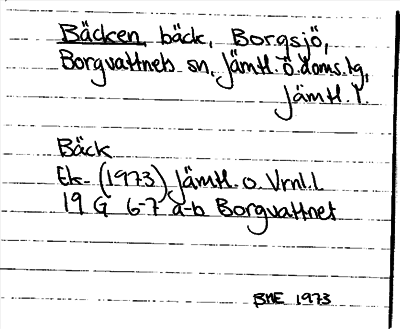 Bäcken, bäck, Borgsjö,
Borgvattnets sn, Jämtl. ö. doms.lg,
Jämtl. l.
Bäck
Ek. (1973) Jämtl. o. Vrnl. l
19 G 6-7 a-b Borgvattnet
BME 1973